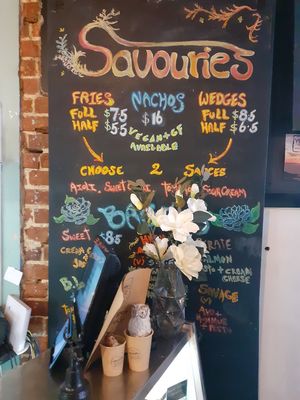 Savouries
FRIES
FULL $7.5
HALF $5.5
NACHOS
$16
VEGAN + GF
AVAILABLE
WEDGES
FULL $8.5
HALF $6.5
CHOOSE 2 SAUCES
AIOLI, SWEET
SOUR CREAM
BA
SWEET
$8.5
CREA
& JA
RATE
LMON
+ CREAM
CHEESE
SAVAGE
(V)
AVO +
HUMMUS
+ PESTO